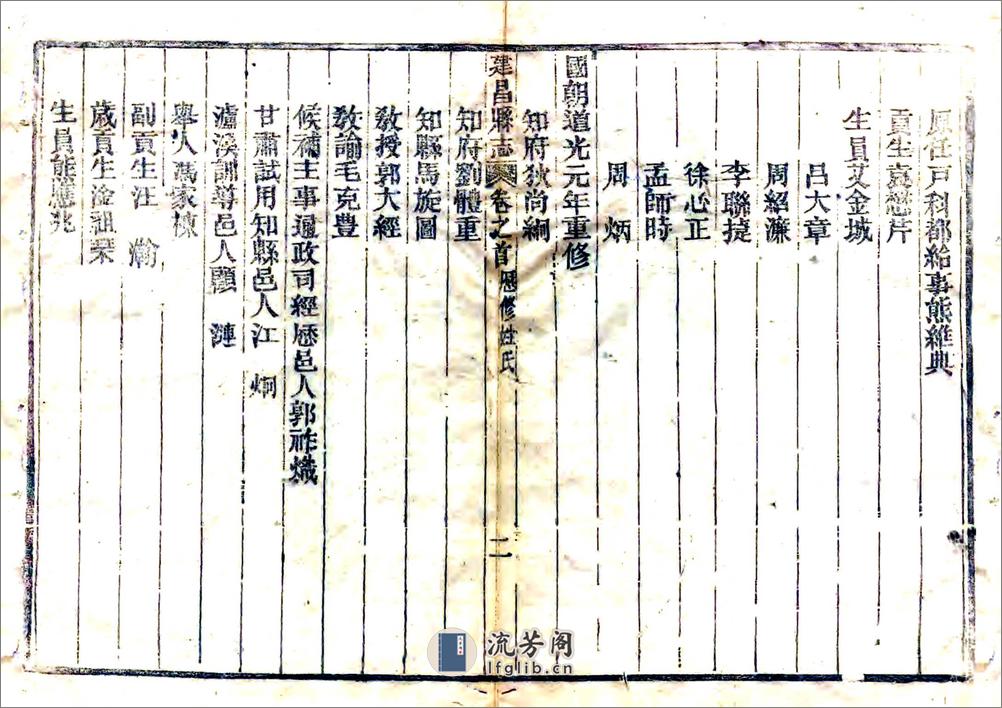 原任戶科都給事熊維典
貢生袁懋芹
生員艾金城
呂大章
周紹濂
李聯捷
徐心正
孟師時
周炳
國朝道光元年重修
知府狄尚絅
建昌縣志 卷之首 歷修姓氏 二
知府劉體重
知縣馬旋圖
敎授郭大經
敎諭毛克豐
候補主事通政司經歷邑人郭祚熾
甘肅試用知縣邑人江炯
瀘溪訓導邑人顧漣
舉人馮家棟
副貢生汪瀚
歲貢生淦祖栞
生員熊應兆
流芳阁
lfglib.cn